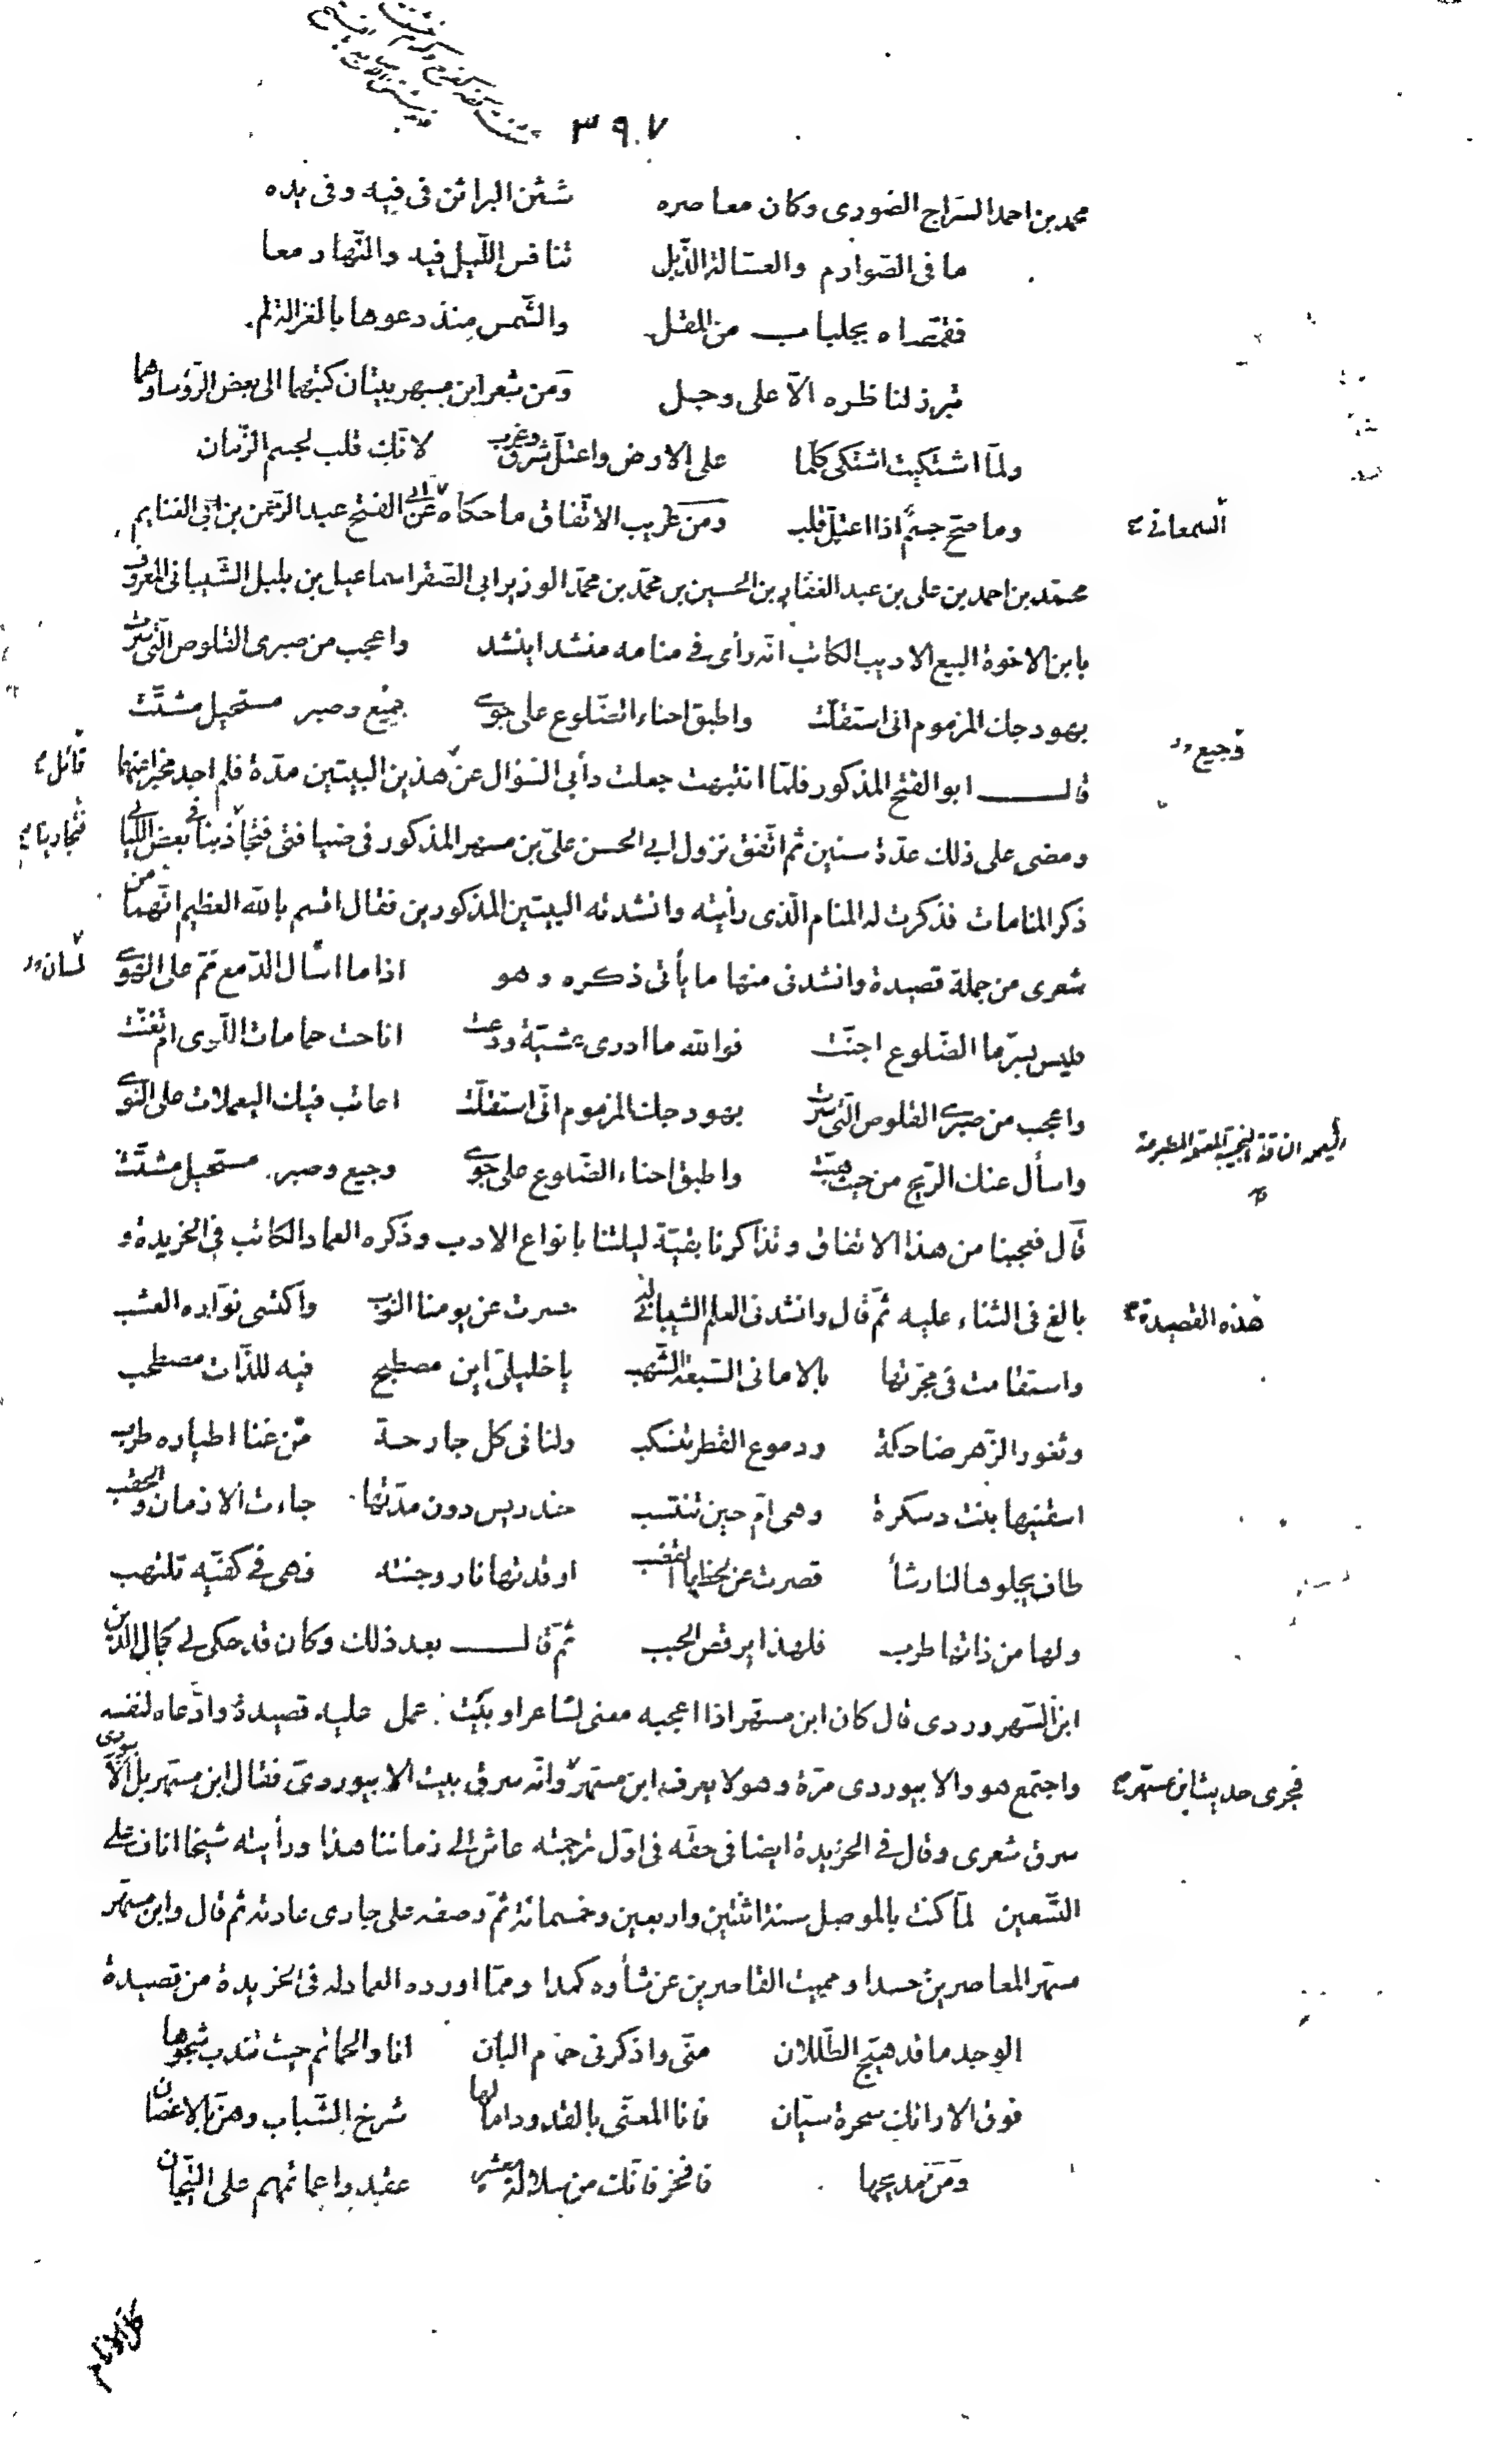 ٣٩٠٧
محمد بن احمد السراج الصورى وكان معاصره شثن البراثن فى فيه وفى يده
ما فى الصوارم والعسالة الذبل تنافس الليل فيه والنهار معا
فقمصاه بجلباب من المقل والشمس منذ دعوها بالغزالة لم
تبرز لناظره الا على وجل ومن شعر ابن مسهر بيتان كتبهما الى بعض الرؤساء وهما
ولما اشتكيت اشتكى كلما على الارض واعتل شرق وغرب لانك قلب لجسم الزمان
وما صح جسم اذا اعتل قلب ومن غريب الاتفاق ما حكاه عن ابى الفتح عبد الرحمن بن ابى الغنايم
السمعانى
محمد بن احمد بن على بن عبد الغفار بن الحسين بن محمد بن محمد الوزير ابى الصقر اسماعيل بن بلبل الشيبانى المعروف
بابن الاخوة البيع الاديب الكاتب انه رأى فى منامه منشدا ينشد واعجب من صبرى القلوص التى سرت
بهودجك المزموم انى استقلت واطبق احناء الضلوع على جوى جميع وصبر مستحيل مشتت
وجيع
قال ابو الفتح المذكور فلما انتبهت جعلت دأبى السؤال عن هذين البيتين مدة فلم اجد مخبرا عنهما
قائل
ومضى على ذلك عدة سنين ثم اتفق نزول ابى الحسن على بن مسهر المذكور فى ضيافتى فتجاذبنا فى بعض الليالى
فتجارينا
ذكر المنامات فذكرت له المنام الذى رأيته وانشدته البيتين المذكورين فقال اقسم بالله العظيم انهما من
شعرى من جملة قصيدة وانشدنى منها ما يأتى ذكره وهو اذا ما اسال الدمع نم على الهوى
لسان
فليس بسر ما الضلوع اجنت فوالله ما ادرى عشية ودعت اناحت حمامات اللوى ام تغنت
واعجب من صبرى القلوص التى سرت بهودجك المزموم انى استقلت اعاتب فيك اليعملات على النوى
واسأل عنك الريح من حيث هبت واطبق احناء الضلوع على جوى وجيع وصبر مستحيل مشتت
قال فعجبنا من هذا الاتفاق وتذاكرنا بقية ليلتنا بانواع الادب وذكره العماد الكاتب فى الخريدة و
بالغ فى الثناء عليه ثم قال وانشدنى العلم الشيبانى له حسرت عن يومنا النوب واكتسى نواره العشب
هذه القصيدة
واستقامت فى مجرتها بالامانى السبعة الشهب يا خليلى اين مصطبح فيه للذات مصطحب
وثغور الزهر ضاحكة ودموع القطر تنسكب ولنا فى كل جارحة من غنا اطياره طرب
اسقنيها بنت دسكرة وهى ام حين تنتسب خندريس دون مدتها جاءت الازمان والحقب
طاف يجلوها لنا رشأ قصرت عن لحظه القضب اوقدتها نار وجنته فهى فى كفيه تلتهب
ولها من ذاتها طرب فلهذا يرقص الحبب ثم قال بعد ذلك وكان قد حكى لى كمال الدين
ابن السهروردى قال كان ابن مسهر اذا اعجبه معنى لشاعر او بيت عمل عليه قصيدة وادعاه لنفسه
واجتمع هو والابيوردى مرة وهو لا يعرفه ابن مسهر وانه سرق بيت الابيوردى فقال ابن مسهر بل الابيوردى
فجرى حديث ابن مسهر
سرق شعرى وقال فى الخريدة ايضا فى حقه فى اول ترجمته عاش الى زماننا هذا ورأيته شيخا اناف على
التسعين لما كنت بالموصل سنة اثنتين واربعين وخمسمائة ثم وصفه على جارى عادته ثم قال وابن مسهر
مسهر المعاصرين حسدا ومميت القاصرين عن شأوه كمدا ومما اورده العماد له فى الخريدة من قصيدة
الوجد ما قد هيج الطللان منى واذكرنى حمام البان انا والحمائم حيث تندب شجوها
فوق الاراك سحرة سيان فانا المعنى بالقدود اما لها شرخ الشباب وهن بالاغصان
ومن مديحها فافخر فانك من سلالة معشر عقدوا عمائمهم على التيجان